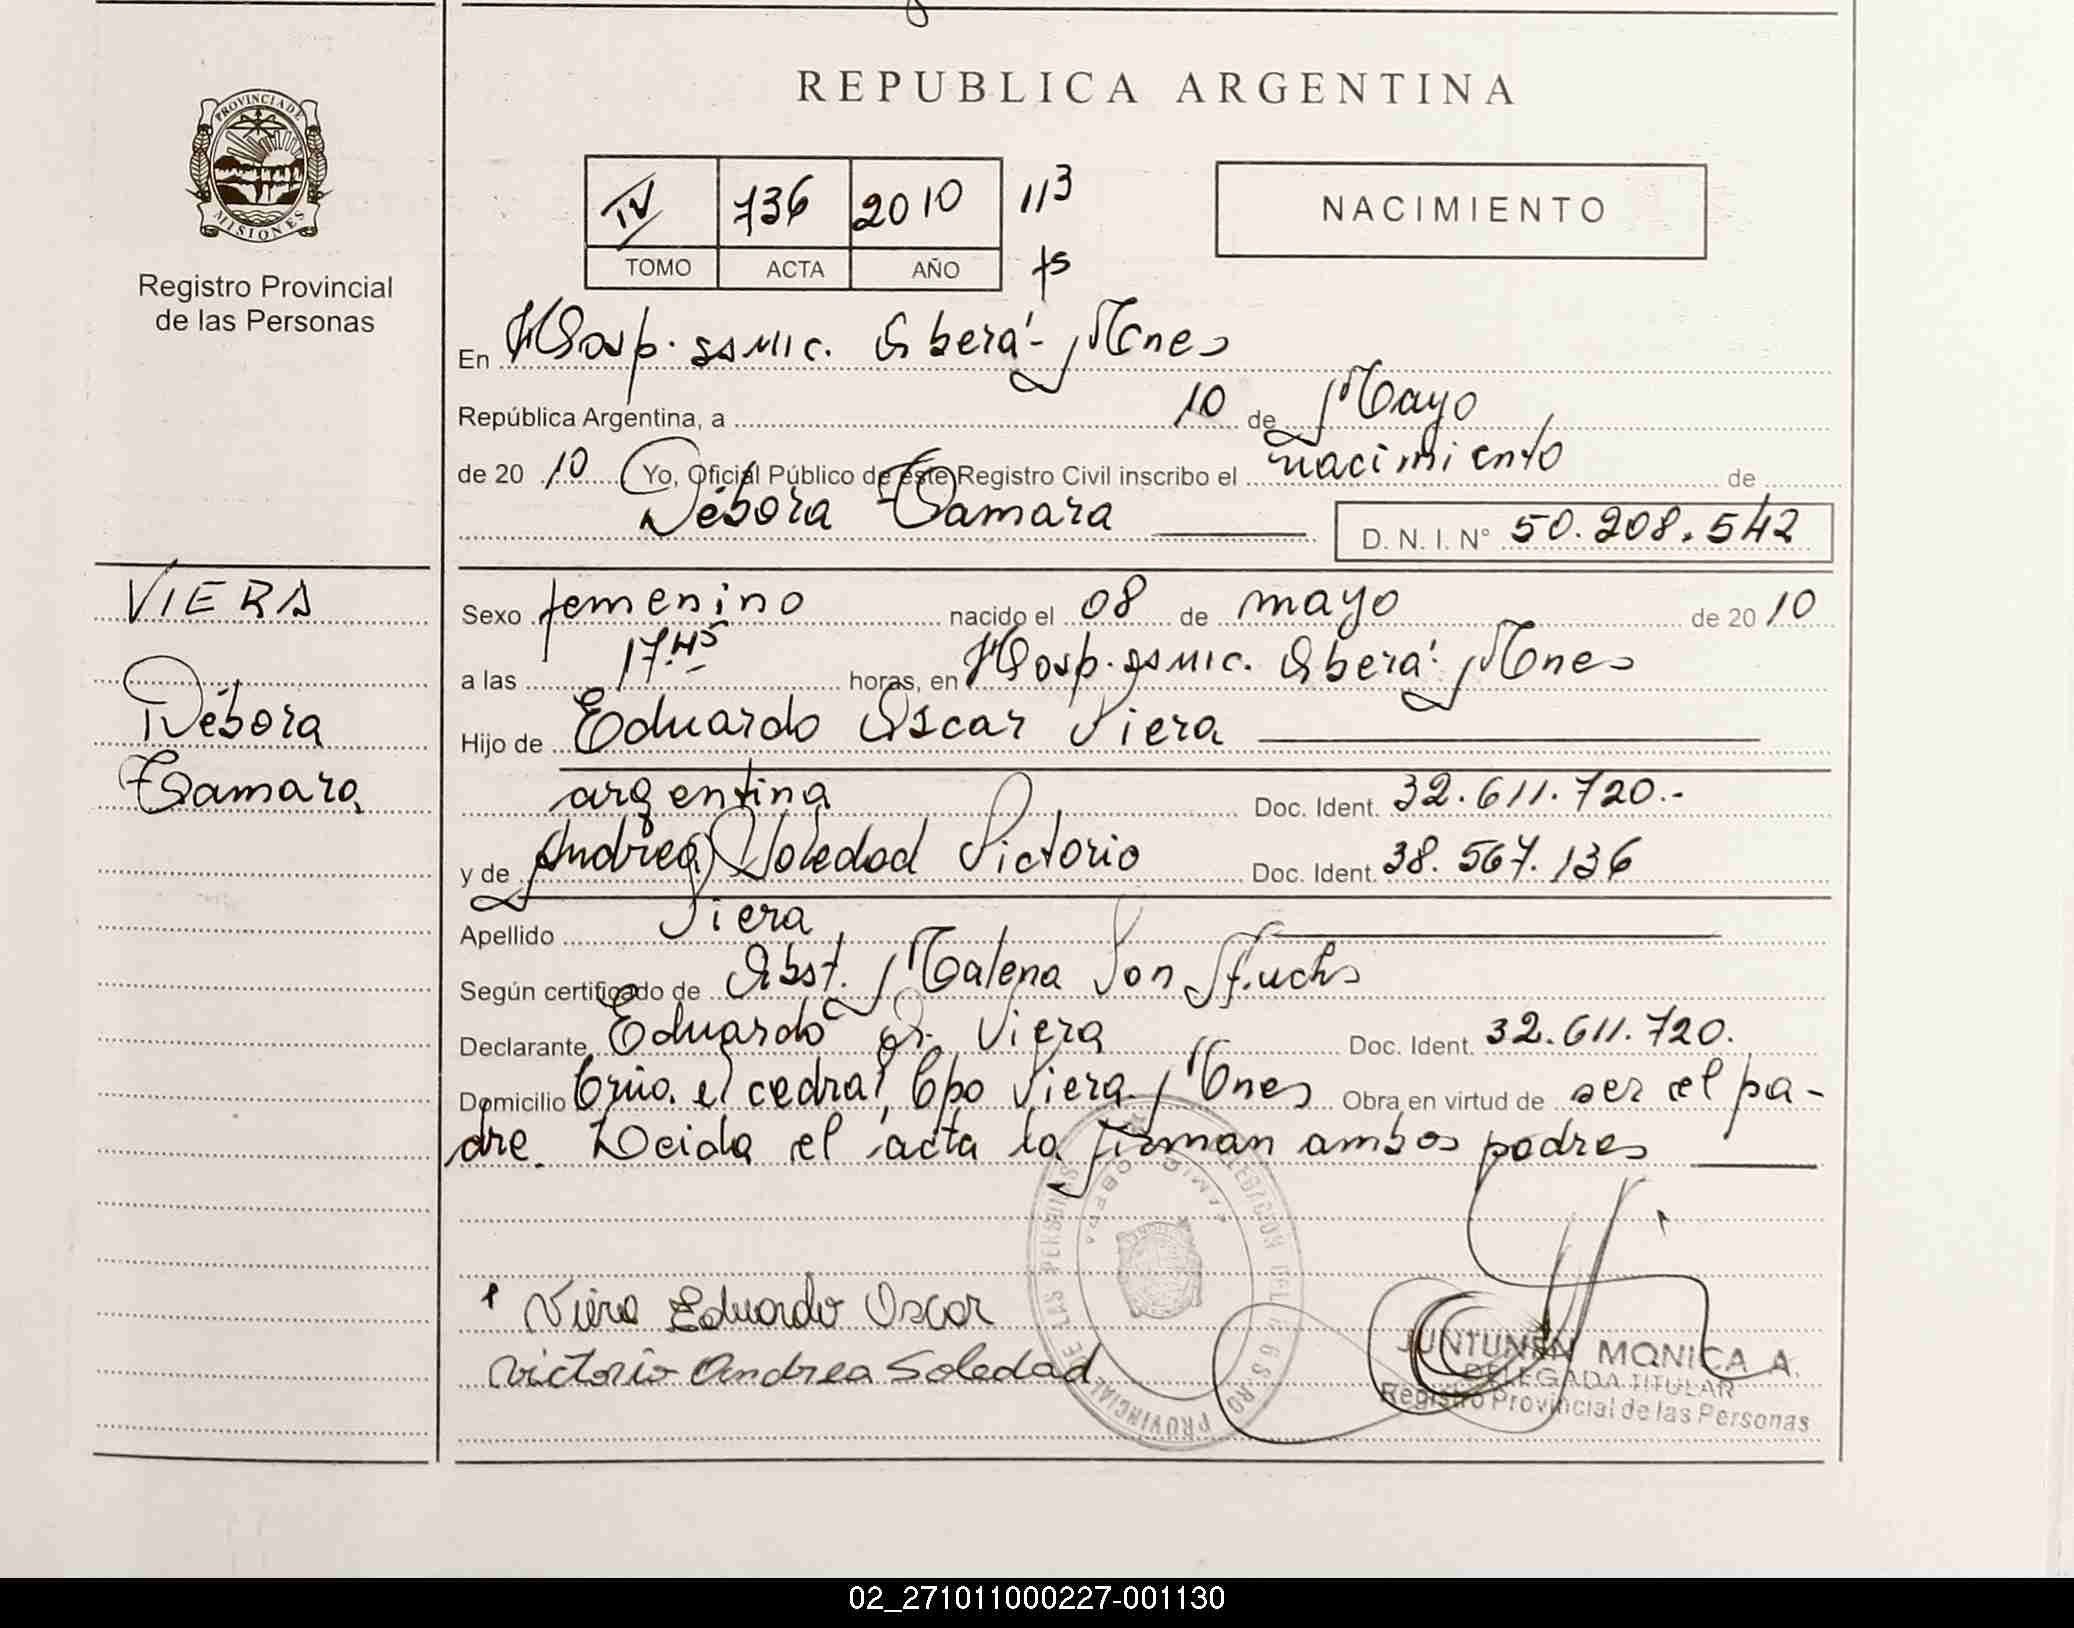 REPUBLICA ARGENTINA
PROVINCIA DE
MISIONES
Registro Provincial
de las Personas
IV 736 2010 113
TOMO ACTA AÑO fs
NACIMIENTO
En Hosp. samic. Oberá - Mnes
República Argentina, a 10 de Mayo
de 20 10 Yo, Oficial Público de este Registro Civil inscribo el nacimiento de
Débora Tamara D. N. I. N° 50.208.542
VIERA
Débora
Tamara
Sexo femenino nacido el 08 de mayo de 20 10
a las 17.45 horas, en Hosp. samic. Oberá. Mnes
Hijo de Eduardo Oscar Viera
argentina Doc. Ident. 32.611.720.-
y de Andrea Soledad Victorio Doc. Ident. 38.567.136
Apellido Viera
Según certificado de Obst. Malena Von
Declarante Eduardo O. Viera Doc. Ident. 32.611.720.
Domicilio el cedral, Cpo Viera. Mnes Obra en virtud de ser el pa-
dre. Leida el acta la firman ambos padres
Viera Eduardo Oscar
Victorio Andrea Soledad
PROVINCIAL DE LAS PERSONAS
JUNTUNEN MONICA A.
DELEGADA TITULAR
Registro Provincial de las Personas
02_271011000227-001130